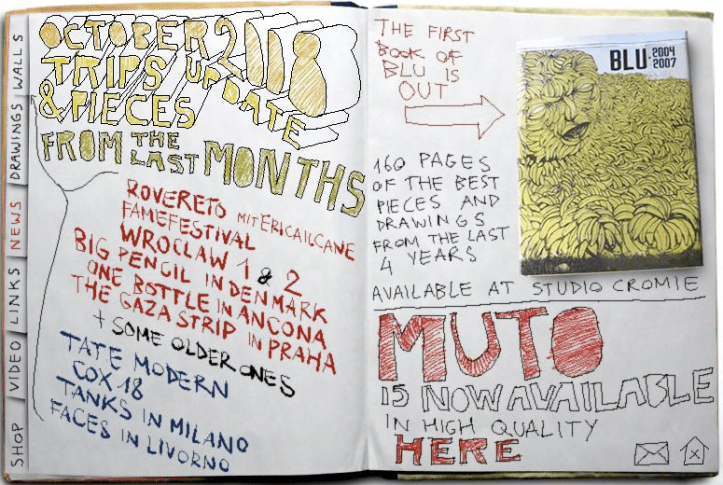 WALLS
DRAWINGS
NEWS
LINKS
VIDEO
SHOP
OCTOBER 2008
TRIPS UPDATE
& PIECES
FROM THE LAST MONTHS
ROVERETO MIT ERICAILCANE
FAMEFESTIVAL
WROCLAW 1 & 2
BIG PENCIL IN DENMARK
ONE BOTTLE IN ANCONA
THE GAZA STRIP IN PRAHA
+ SOME OLDER ONES
TATE MODERN
COX 18
TANKS IN MILANO
FACES IN LIVORNO
THE FIRST
BOOK OF
BLU IS
OUT
BLU 2004
2007
160 PAGES
OF THE BEST
PIECES AND
DRAWINGS
FROM THE LAST
4 YEARS
AVAILABLE AT STUDIO CROMIE
MUTO
IS NOW AVAILABLE
IN HIGH QUALITY
HERE